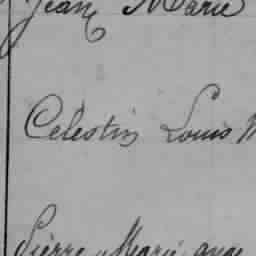 Jean Marie
Célestin Louis M
Pierre Marie ange